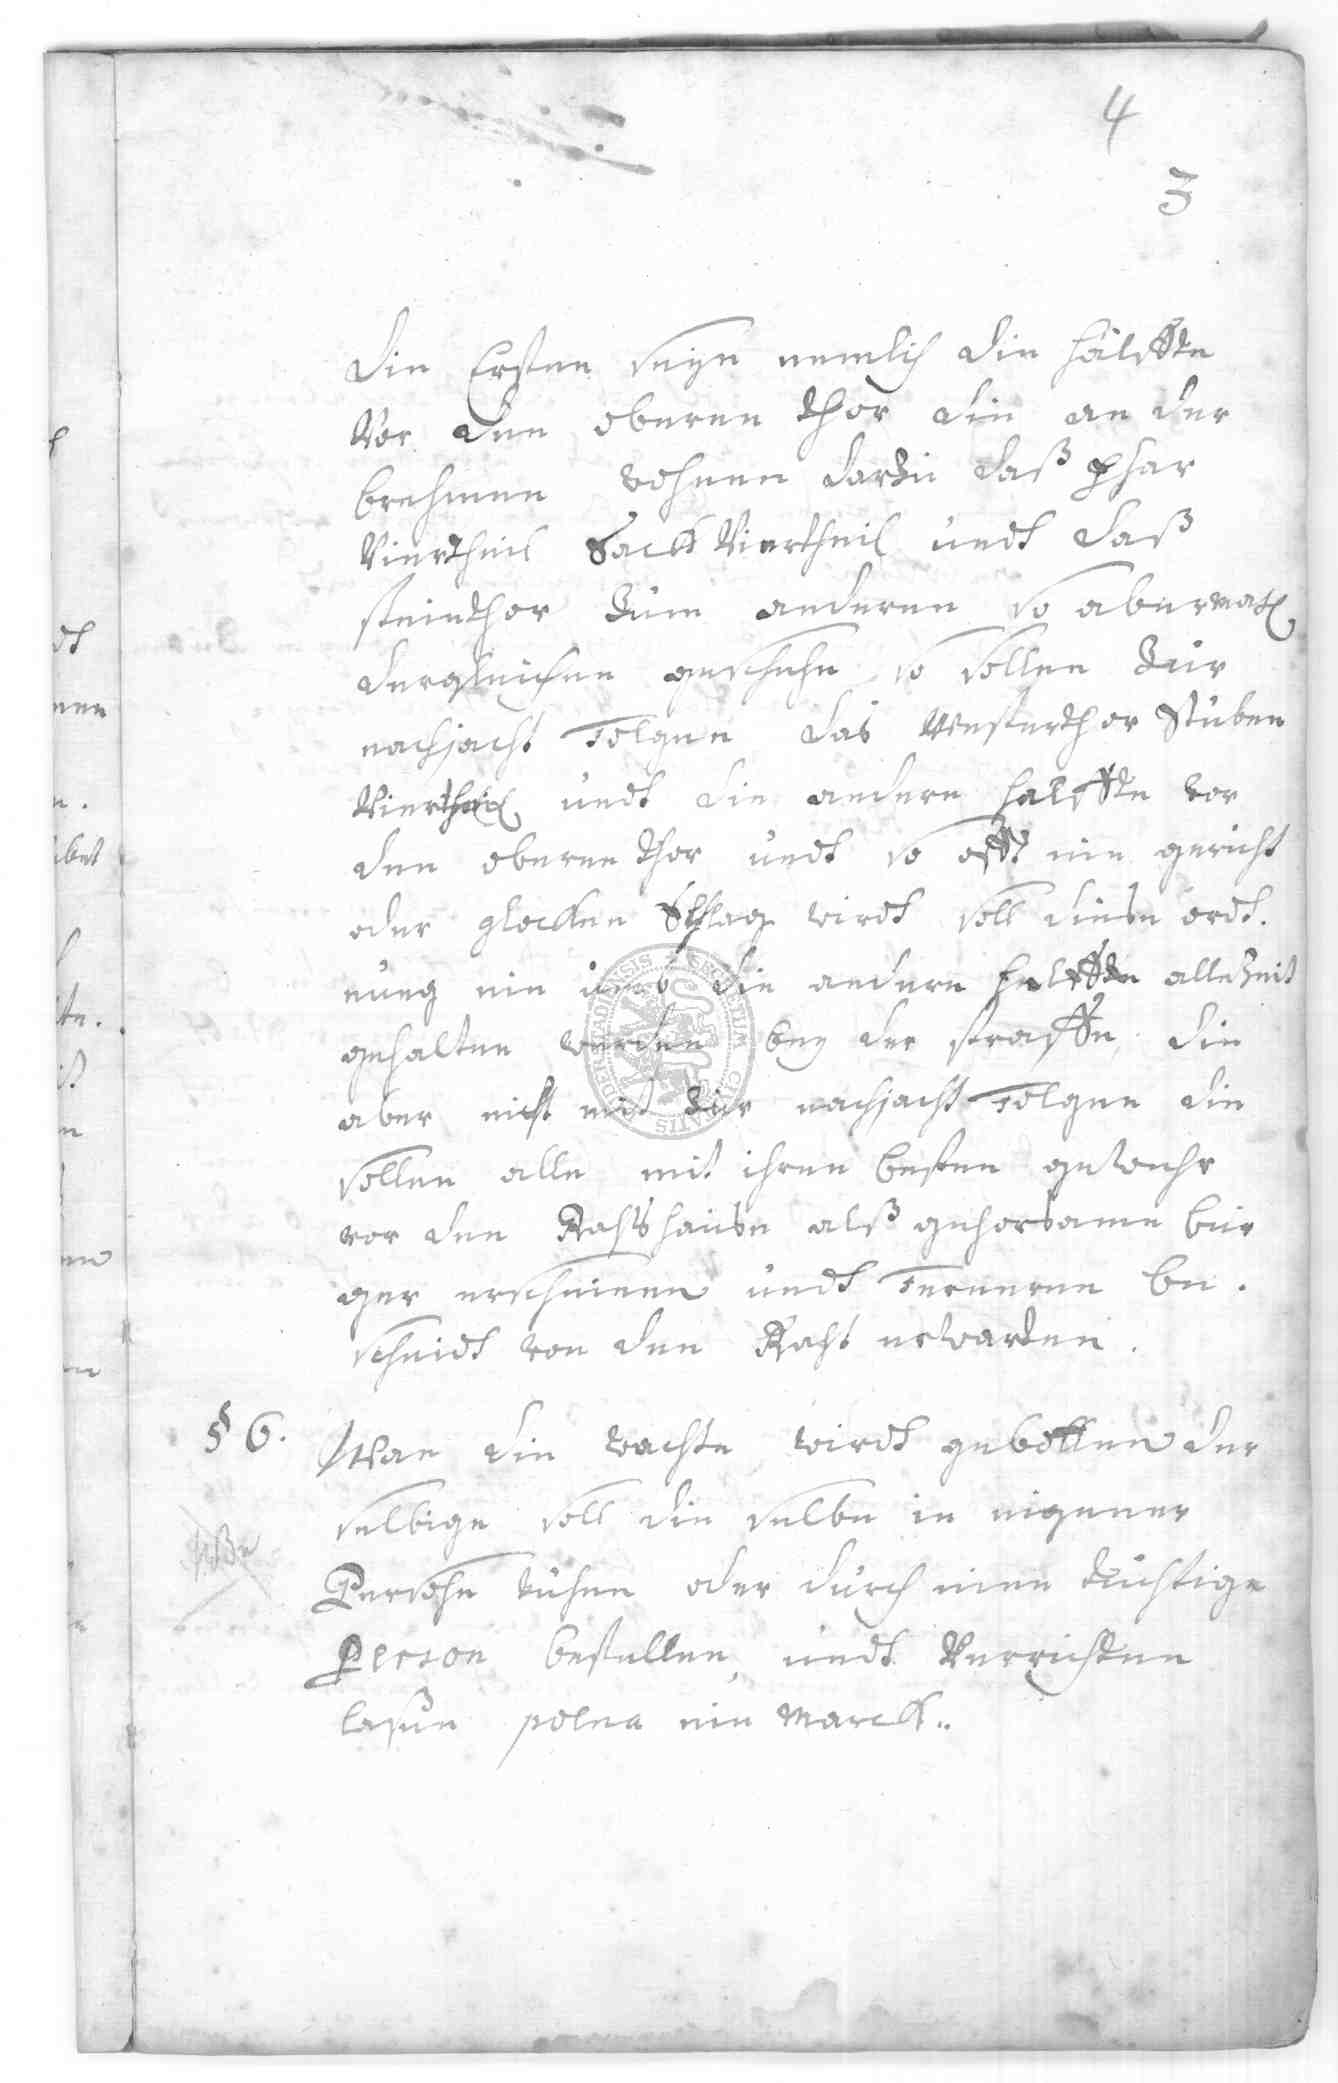 4
3
die Ersten seyn nemlich die hälffte
Vor den oberen thor die an der
brehmen wohnen darzu daß phar
Viertheil Sack Viertheil undt daß
steinthor zum anderen so abermahl
dergleichen geschehe so sollen zur
nachjacht folgen das Westerthor Stuben
Viertheil undt die andere halffte vor
den oberen thor undt so offt ein gericht
oder glocken Schlag wirdt soll diese ordt.
nung ein umb die andere helffte allezeit
gehalten werden bey der straffe, die
aber nicht mit zur nachjacht folgen die
sollen alle mit ihren besten gewehr
vor den Rahtshause alß gehorsame bür
ger erscheinen undt ferneren be.
scheidt von den Raht erwarten.
§ 6. Wan die wachte wirdt gebotten der
selbige soll die selbe in eigener
Persohn tuhen oder durch einen tüchtige
Person bestellen, undt Verrichten
lasen poena ein Marck..
SECRETUM CIVITATIS